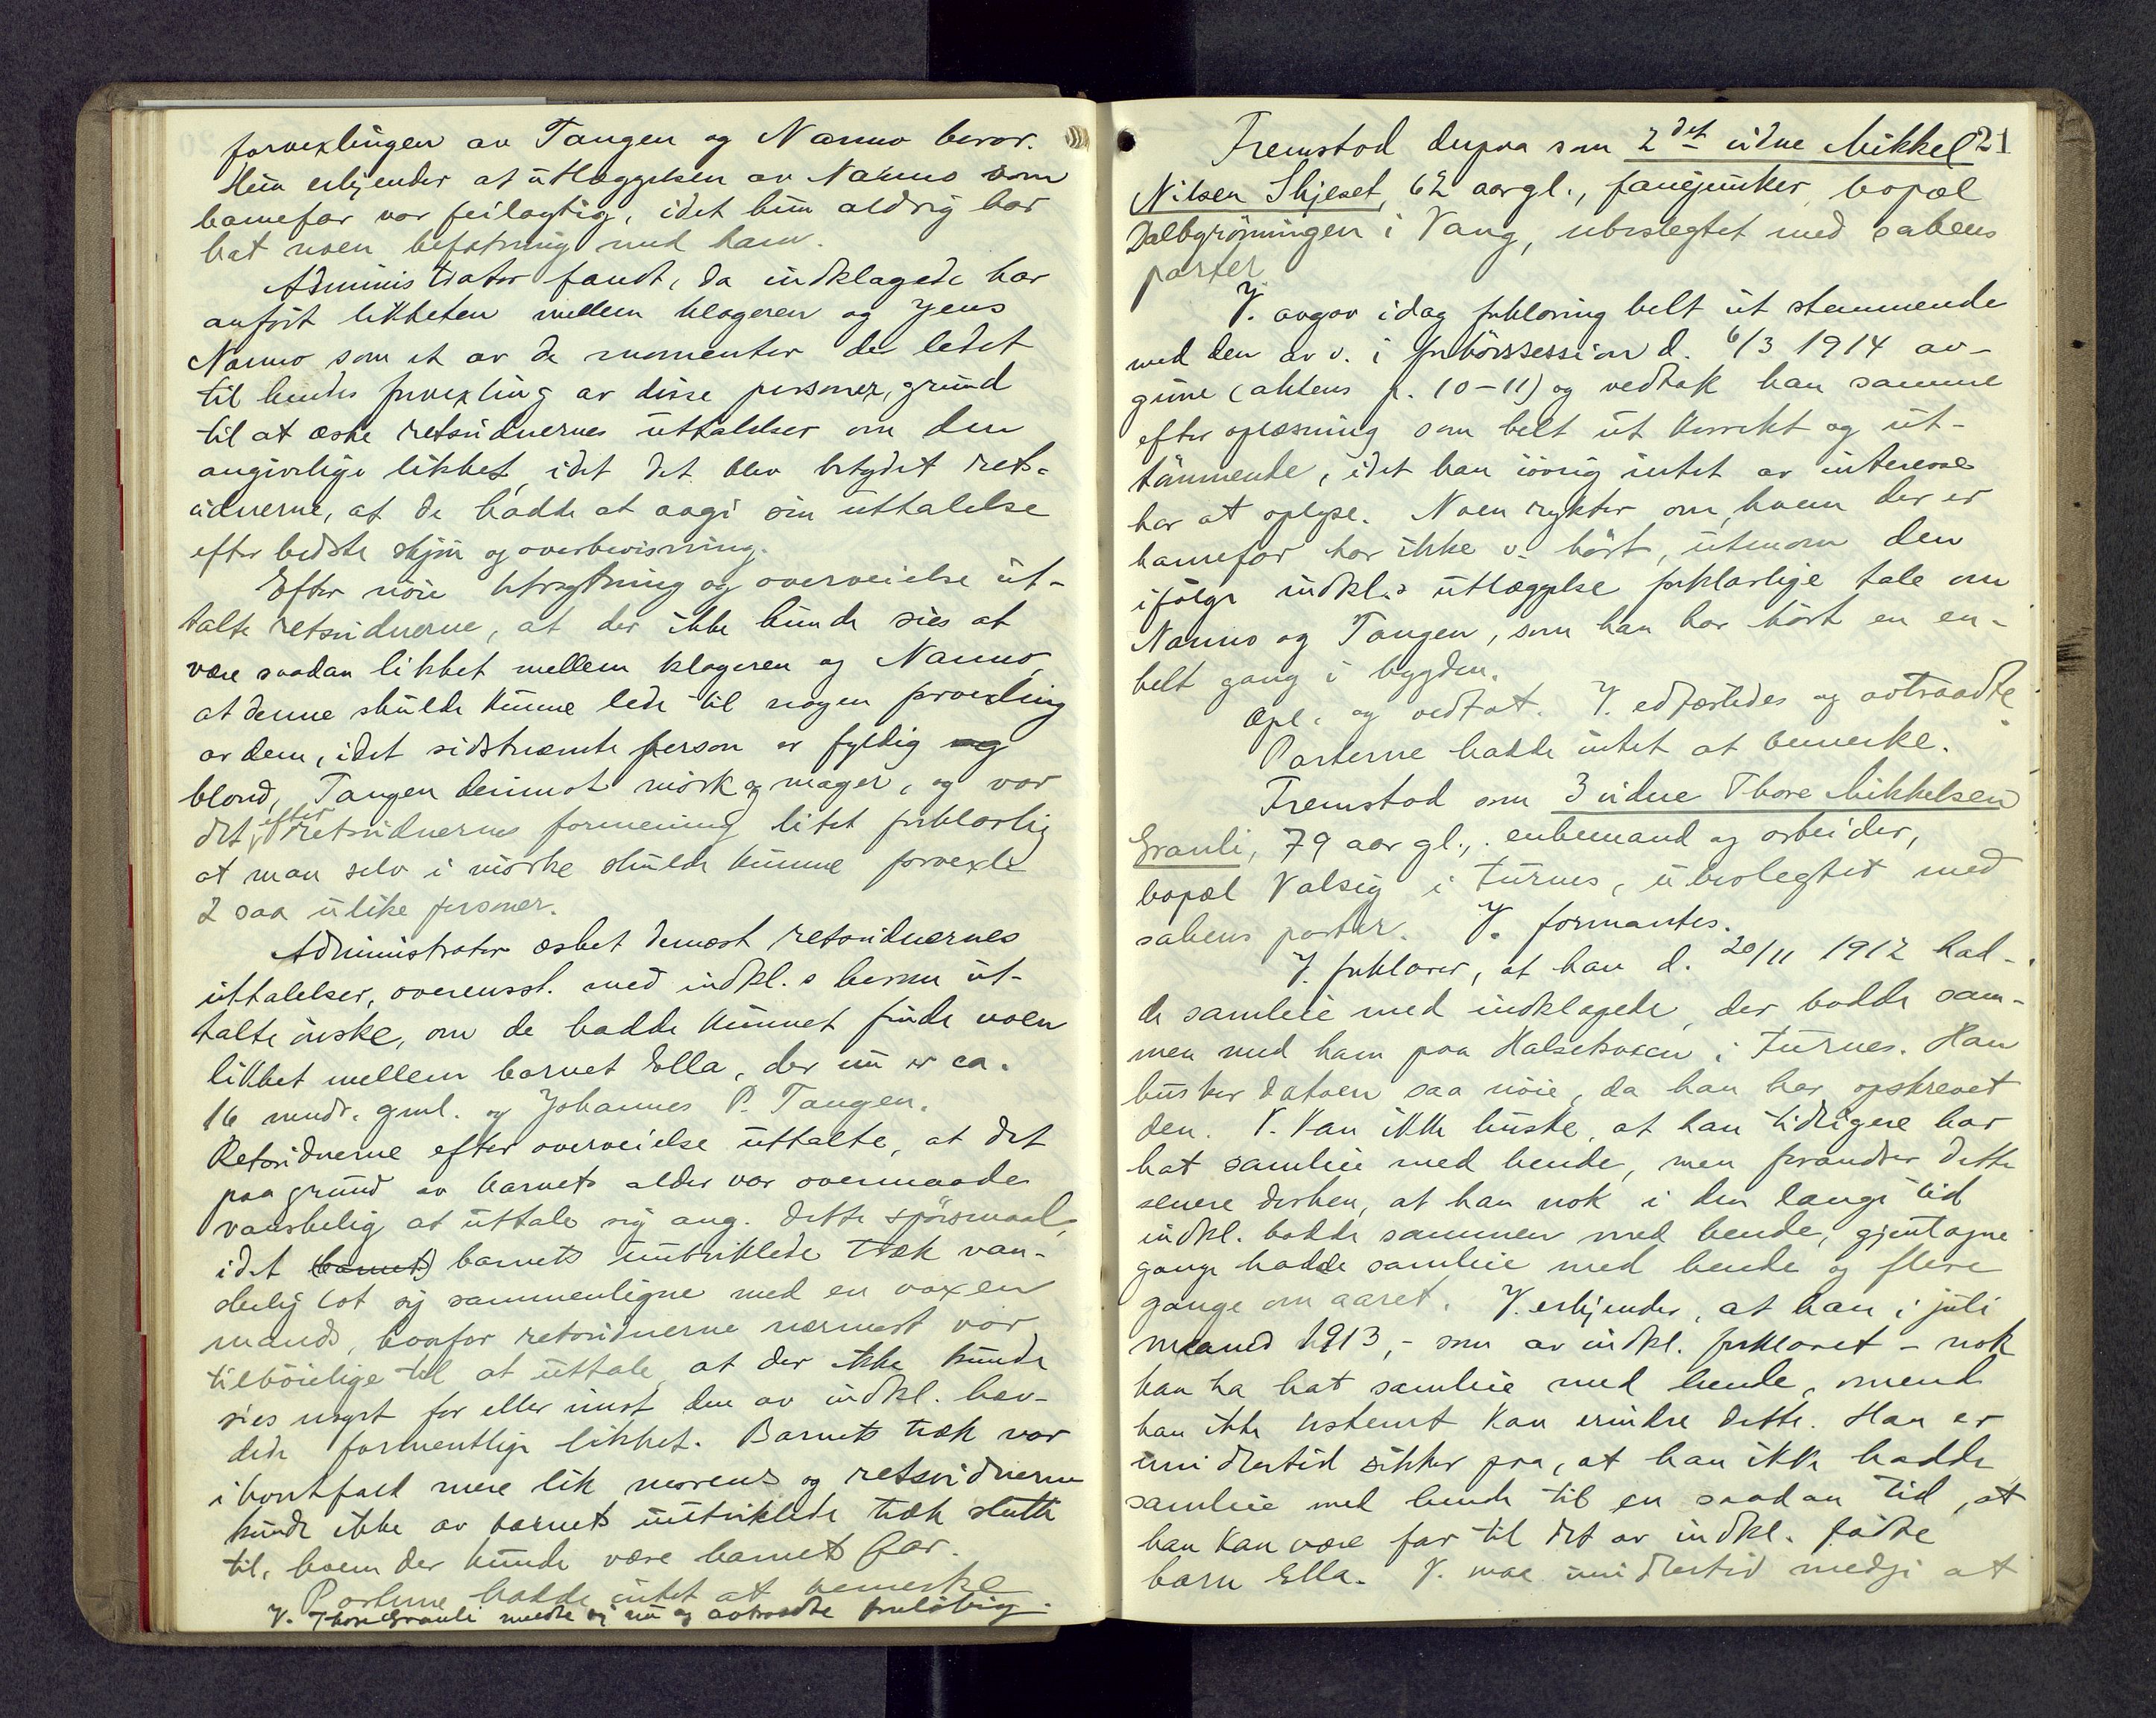 forvexlingen av Tangen og Nanno beror.
Hun erkjender at utlæggelsen av Nanno som
barnefar var feilagtig, idet hun aldrig har
hat noen befatning med ham.
Administrator fandt, da indklagede har
anført likheten mellem klageren og Jens
Nanno som et av de momenter der ledet
til hendes forvexling av disse personer, grund
til at æske retsvidnernes uttalelser om den
angivelige likhet, idet det blev betydet rets-
vidnerne, at de hadde at avgi sin uttalelse
efter bedste skjøn og overbevisning.
Efter nøie betragtning og overveielse ut-
talte retsvidnerne, at der ikke kunde sies at
være saadan likhet mellem klageren og Nanno,
at denne skulde kunne lede til nogen forvexling
av dem, idet sidstnævnte person er fyldig og
blond, Tangen derimot mörk og mager, og var
det efter retsvidnernes formening litet forklarlig
at man selv i mörke skulde kunne forvexle
2 saa ulike personer.
Administrator æsket dernæst retsvidnernes
uttalelser, overensst. med indkl.s herom ut-
talte önske, om de hadde kunnet finde noen
likhet mellem barnet Ella, der nu er ca.
16 mndr. gml. og Johannes P. Tangen.
Retsvidnerne efter overveielse uttalte, at det
paa grund av barnets alder var overmaade
vanskelig at uttale sig ang. dette spörsmaal,
idet (barnets) barnets uutviklede træk van-
skelig lot sig sammenligne med en voxen
mands, hvorfor retsvidnerne nærmest var
tilböielige til at uttale, at der ikke kunde
sies noget for eller imot den av indkl. hæv-
dede formentlige likhet. Barnets træk var
i hvert fald mere lik morens og retsvidnerne
kunde ikke av barnets uutviklede træk slutte
til, hvem der kunde være barnets far.
Parterne hadde intet at bemerke
V. Thore Granli meldte sig nu og avtraadte foreløbig.
Fremstod derpaa som 2det vidne Mikkel 21
Nilsen Skjeset, 62 aar gl., fanejunker, bopæl
Dalbygröpningen i Vang, ubeslegtet med sakens
parter.
V. avgav idag forklaring helt ut stemmende
med den av v. i forhörssession d. 6/3 1914 av-
givne (aktens p. 10-11) og vedtok han samme
efter oplæsning som helt ut korrekt og ut-
tømmende, idet han iövrig intet av interesse
har at oplyse. Noen rykter om, hvem der er
barnefar har ikke v. hört, utenom den
ifølge indkl.s utlæggelse forklarlige tale om
Nanno og Tangen, som han har hört en en-
kelt gang i bygden.
Opl. og vedtat. V. edfæstedes og avtraadte
Parterne hadde intet at bemerke.
Fremstod som 3 vidne Thore Mikkelsen
Granli, 79 aar gl., enkemand og arbeider,
bopæl Valsig i Furnes, ubeslegtet med
sakens parter. V. formantes.
V. forklarer, at han d. 20/11 1912 had-
de samleie med indklagede, der bodde sam-
men med ham paa Halsetvoxen i Furnes. Han
husker datoen saa nøie, da han har opskrevet
den. V. kan ikke huske, at han tidligere har
hat samleie med hende, men forandrer dette
senere derhen, at han nok i den lange tid
indkl. bodde sammen med hende, gjentagne
gange hadde samleie med hende og flere
gange om aaret. V. erkjender, at han i juli
maaned 1913,- som av indkl. forklaret - nok
kan ha hat samleie med hende, omend
han ikke bestemt kan erindre dette. Han er
imidlertid sikker paa, at han ikke hadde
samleie med hende til en saadan tid, at
han kan være far til det av indkl. födte
barn Ella. V. maa imidlertid medgi at